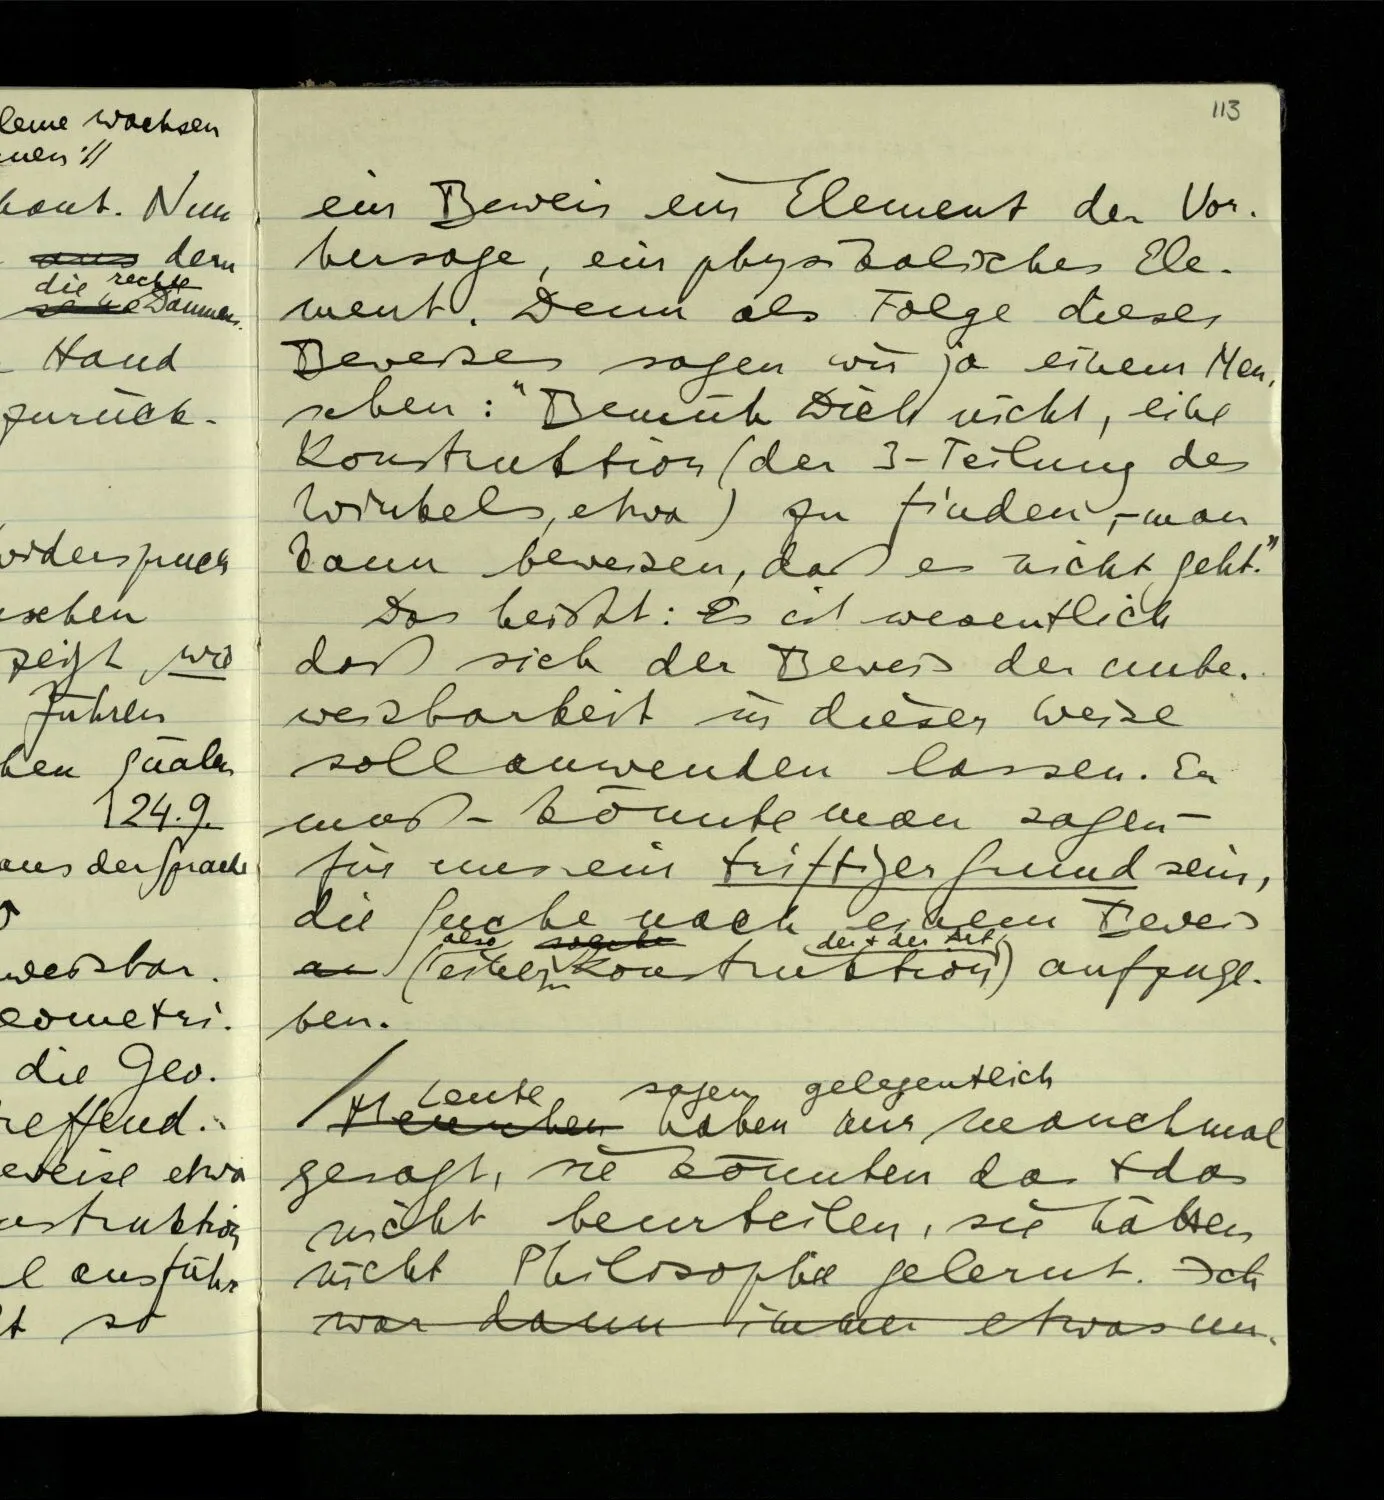 leme wachsen
nen://
kant. Nun
aus dem
die rechte
seine Daumen
Hand
zurück-
widerspruch
ischen
zeigt, wie
führen
hen quälen
24.9.
aus der Sprache
weisbar.
eometri-
die Geo-
reffend.
eweise etwa
nstruktion
l ausführ
t so
113
ein Beweis ein Element der Vor-
hersage, ein physikalisches Ele-
ment. Denn als Folge dieses
Beweises sagen wir ja einem Men-
schen: "Bemüh Dich nicht, eine
Konstruktion (der 3-Teilung des
Winkels, etwa) zu finden, – man
kann beweisen, daß es nicht geht."
Das heißt: Es ist wesentlich
daß sich der Beweis der unbe-
weisbarkeit in dieser Weise
soll anwenden lassen. Er
muß – könnte man sagen –
für uns ein triftiger Grund sein,
die Suche nach einem Beweis
also solche der & der Art
an (einer Konstruktion) aufzuge-
ben.
Leute sagen gelegentlich
/Menschen haben mir manchmal
gesagt, sie könnten das & das
nicht beurteilen, sie hätten
nicht Philosophie gelernt. Ich
war dann immer etwas un-